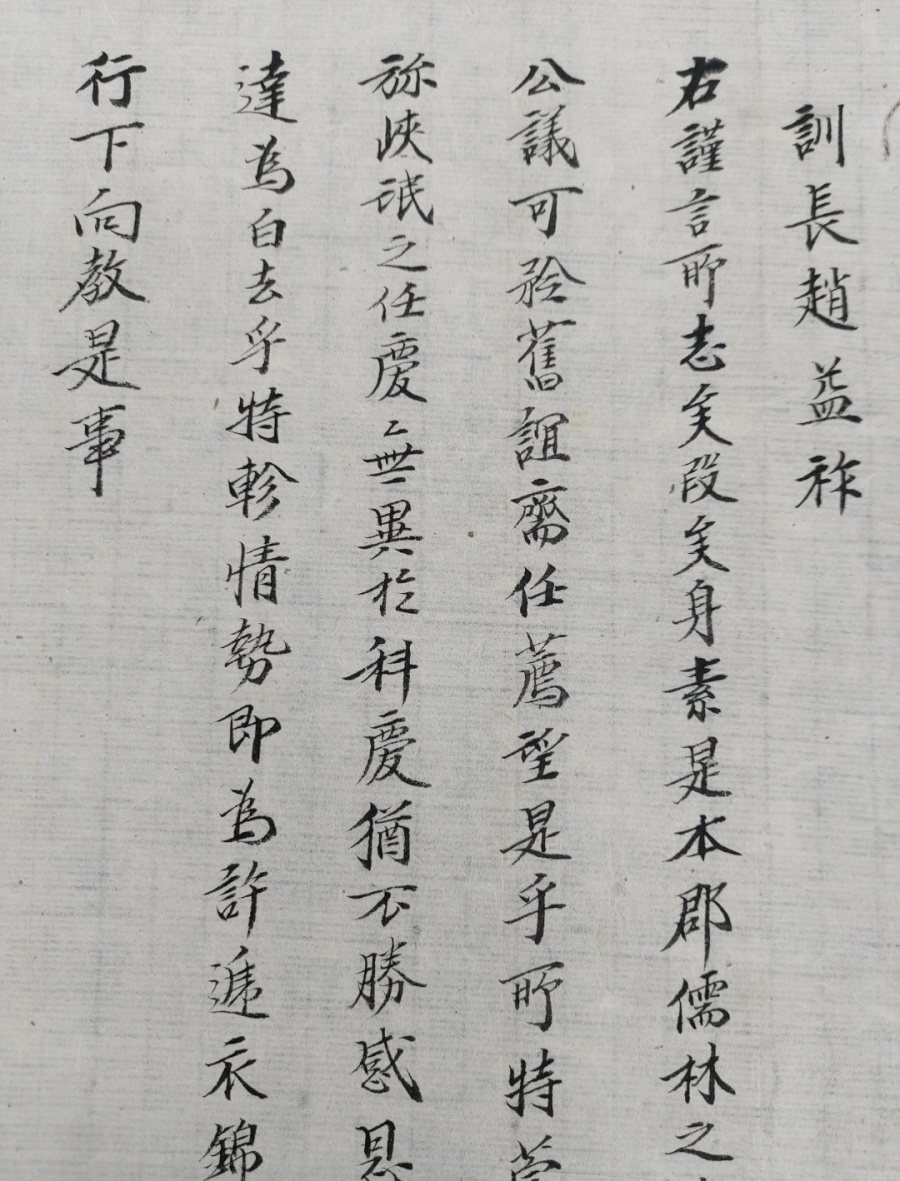 訓長趙益祚
右謹言所志矣段矣身素是本郡儒林之
公議可於舊誼齋任薦望是乎所特
殄峽氓之任慶無異於科慶猶不勝感恩
達為白去乎特軫情勢即為許遞衣錦
行下向敎是事